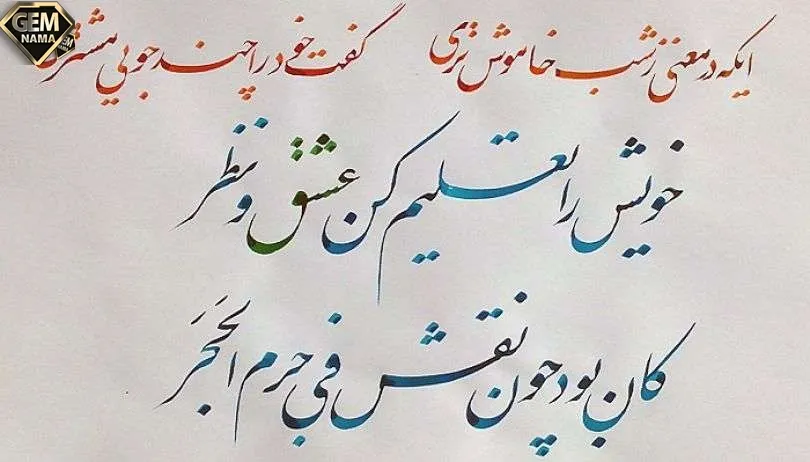 GEM NAMA
ایکه در معنی ز شب خاموش تری گفت خود را چند جویی مشتری
خویش را تعلیم کن عشق و نظر
کان بود چون نقش فی جرم الحَجَر